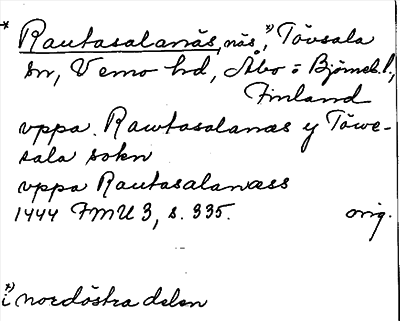 * Rautasalanäs, näs, *) Tövsala
sn, Vemo hd, Åbo o Björneb. l.,
Finland
uppa. Rawtasalanæs y Töwe-
sala sokn
uppa Rautasalanæss
1444 FMU 3, s. 335. orig.
*)
i nordöstra delen